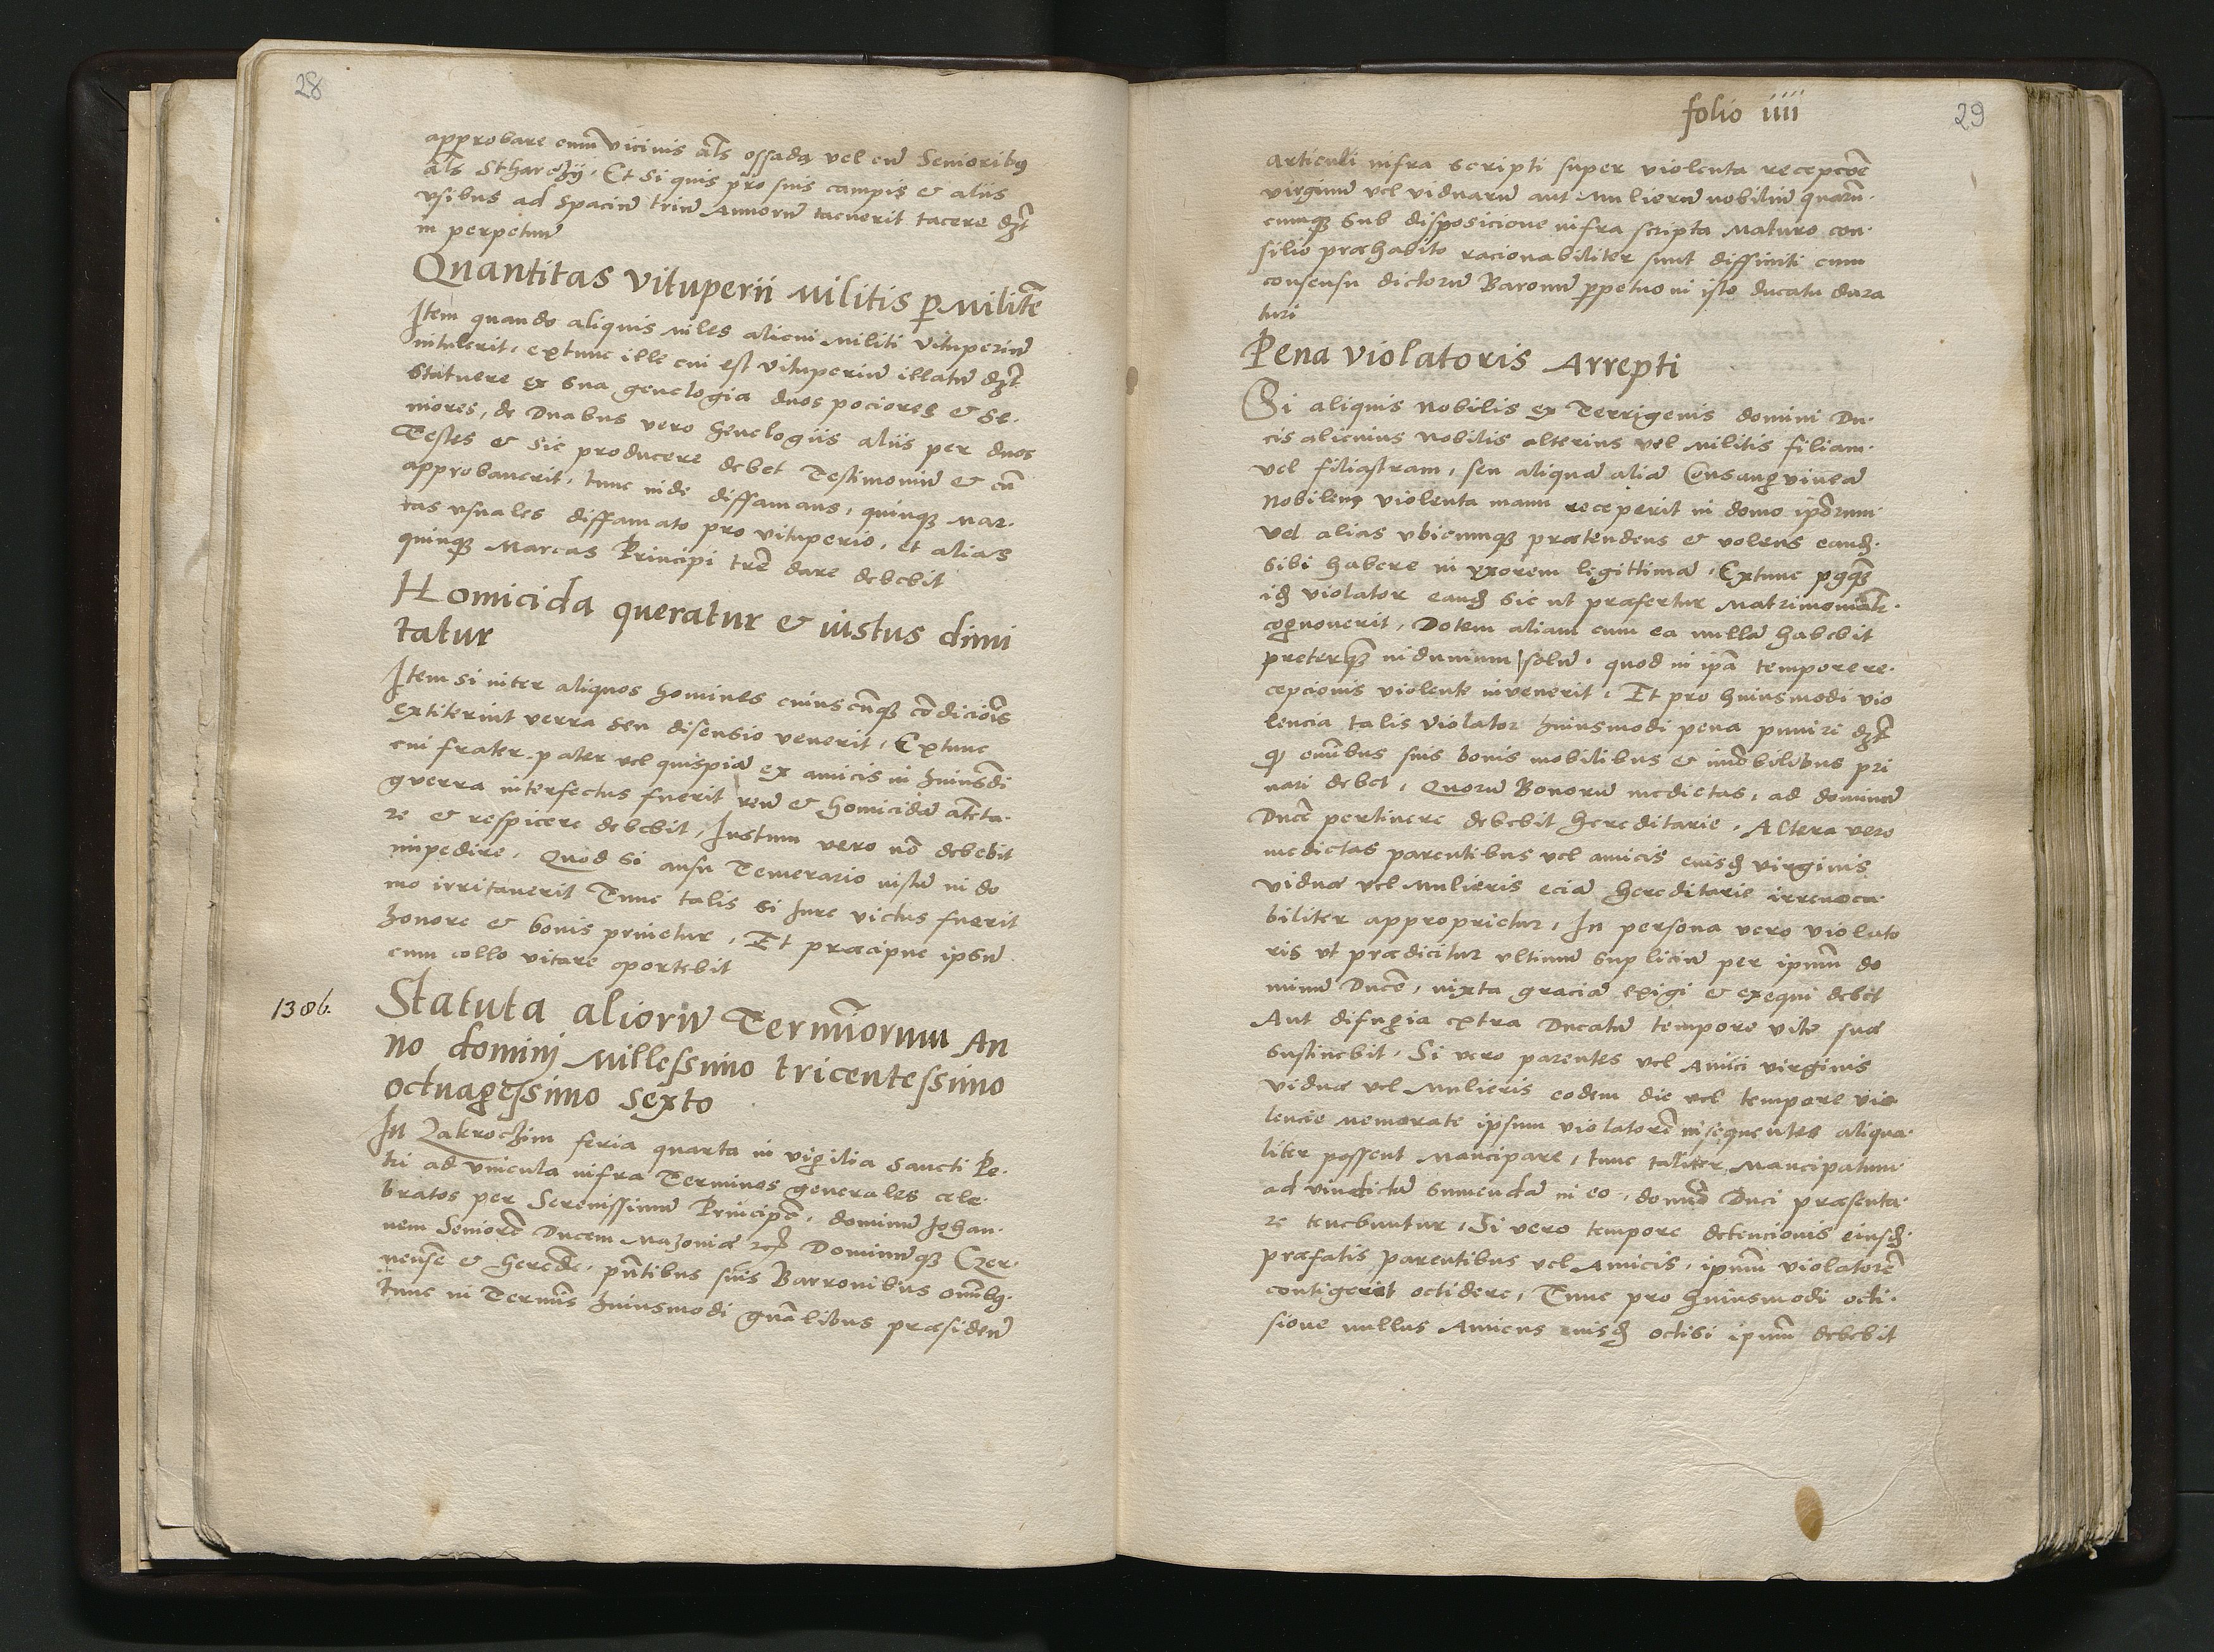 28
approbare cum̄ vicinis al̄s ossadą vel cū Senioribꝫ
al̄s Stharczÿ. Et si quis pro suis campis & aliis
vsibus ad spaciū triū Annorū tacuerit tacere dꝫt
in perpetuū
Quantitas vituperii Militis p̱ Militē
Item quando aliquis Miles alicui Militi vituperiū
intulerit, extunc ille cui est vituperiū illatū dꝫt
Statuere ex sua genelogia duos pociores & Se-
niores, de Duabus vero genelogiis aliis per duos
Testes & sic producere debet Testimoniū & cū
approbauerit, tunc inde diffamans, quinqꝫ Mar-
cas vsuales diffamato pro vituperio, et alias
quinqꝫ Marcas Principi trē dare debebit
Homicida queratur & iustus dimi
tatur
Item si inter aliquos homines cuiuscūqꝫ cōdiciōis
extiterint verra seu disensio venerit, Extunc
cui frater, pater vel quispiā ex amicis in huiusd̄i
guerra interfectus fuerit reū & homicidā attēta-
re & respicere debebit, Justum vero nō debebit
impedire. Quod si ausu Temerario iustū in do
mo irritauerit Tunc talis si Jure victus fuerit
honore & bonis priuetur, Et præcipue ipsū
cum collo vitare oportebit
1386.
Statuta aliorū Term̄inorum An
no dominj Millessimo tricentessimo
octuagessimo sexto
In Zakroczim feria quarta in vigilia Sancti Pe-
tri ad vincula infra Terminos generales cele-
bratos per Serenissimū Principē, dominū Johan-
nem Seniorē Ducem Mazoniæ etc̄ Dominūqꝫ Czer-
nensē & heredē, pn̄tibus suis Barronibus omnībꝫ
tunc in Termis̄ huiusmodi gnālibus præsidēn̄
folio iiii
29
articuli infra scripti super violenta recepcōē
virginū vel viduarū aut Mulierū nobiliū quarū-
cumqꝫ sub disposicione infra scripta Maturo con-
silio præhabito racionabiliter sunt diffiniti cum
consensu dictorū Baronū p̱petuo in isto ducatu dura
turi
Pena violatoris Arrepti
Si aliquis Nobilis ex Terrigenis domini Du-
cis alicuius Nobilis alterius vel Militis filiam
vel filiastram, seu aliquā aliā Consangvineā
Nobilem violenta manu receperit in domo ip̄orum
vel alias vbicumqꝫ prætendens & volens eandꝫ
sibi habere in vxorem legittimā, Extunc p̱qꝫ
idꝫ violator eandꝫ sic ut præfertur Matrimoniālr̄
cognouerit, Dotem aliam cum ea nullā habebit
preterqꝫ indumium solū, quod in ip̄a tempore re-
cepcionis violente invenerit, Et pro huiusmodi vio
lencia talis violator huiusmodi pena puniri dꝫt
ꝙ omnībus suis bonis mobilibus & immōbilibus pri
uari debet, Quorū Bonorū medietas, ad dominū
Ducē pertinere debebit hereditarie, Altera vero
medietas parentibus vel amicis eiusdꝫ virginis
viduæ vel Mulieris eciā hereditarie irreuoca-
biliter approprietur, In persona vero violato
ris ut prædicitur vltimū supliciū per ipm̄m do
minū Ducē, iuxta graciā exigi & exequi debet
Aut difugia extra Ducatū tempore vite suæ
sustinebit, Si vero parentes vel Amici virginis
viduæ vel Mulieris eodem die vel tempore vio
lencie memorate ipsum violatorē insequentes aliqua-
liter possent Mancipare, tunc taliter Mancipatum
ad vindictā sumendā in eo, domīo Duci præsenta-
re tenebuntur, Si vero tempore detencionis eiusdꝫ
præfatis parentibus vel Amicis, ipm̄m violatorē
contigerit octidere, Tunc pro huiusmodi octi-
sione nullus Amicus eiusdꝫ octisi ipm̄m debebit